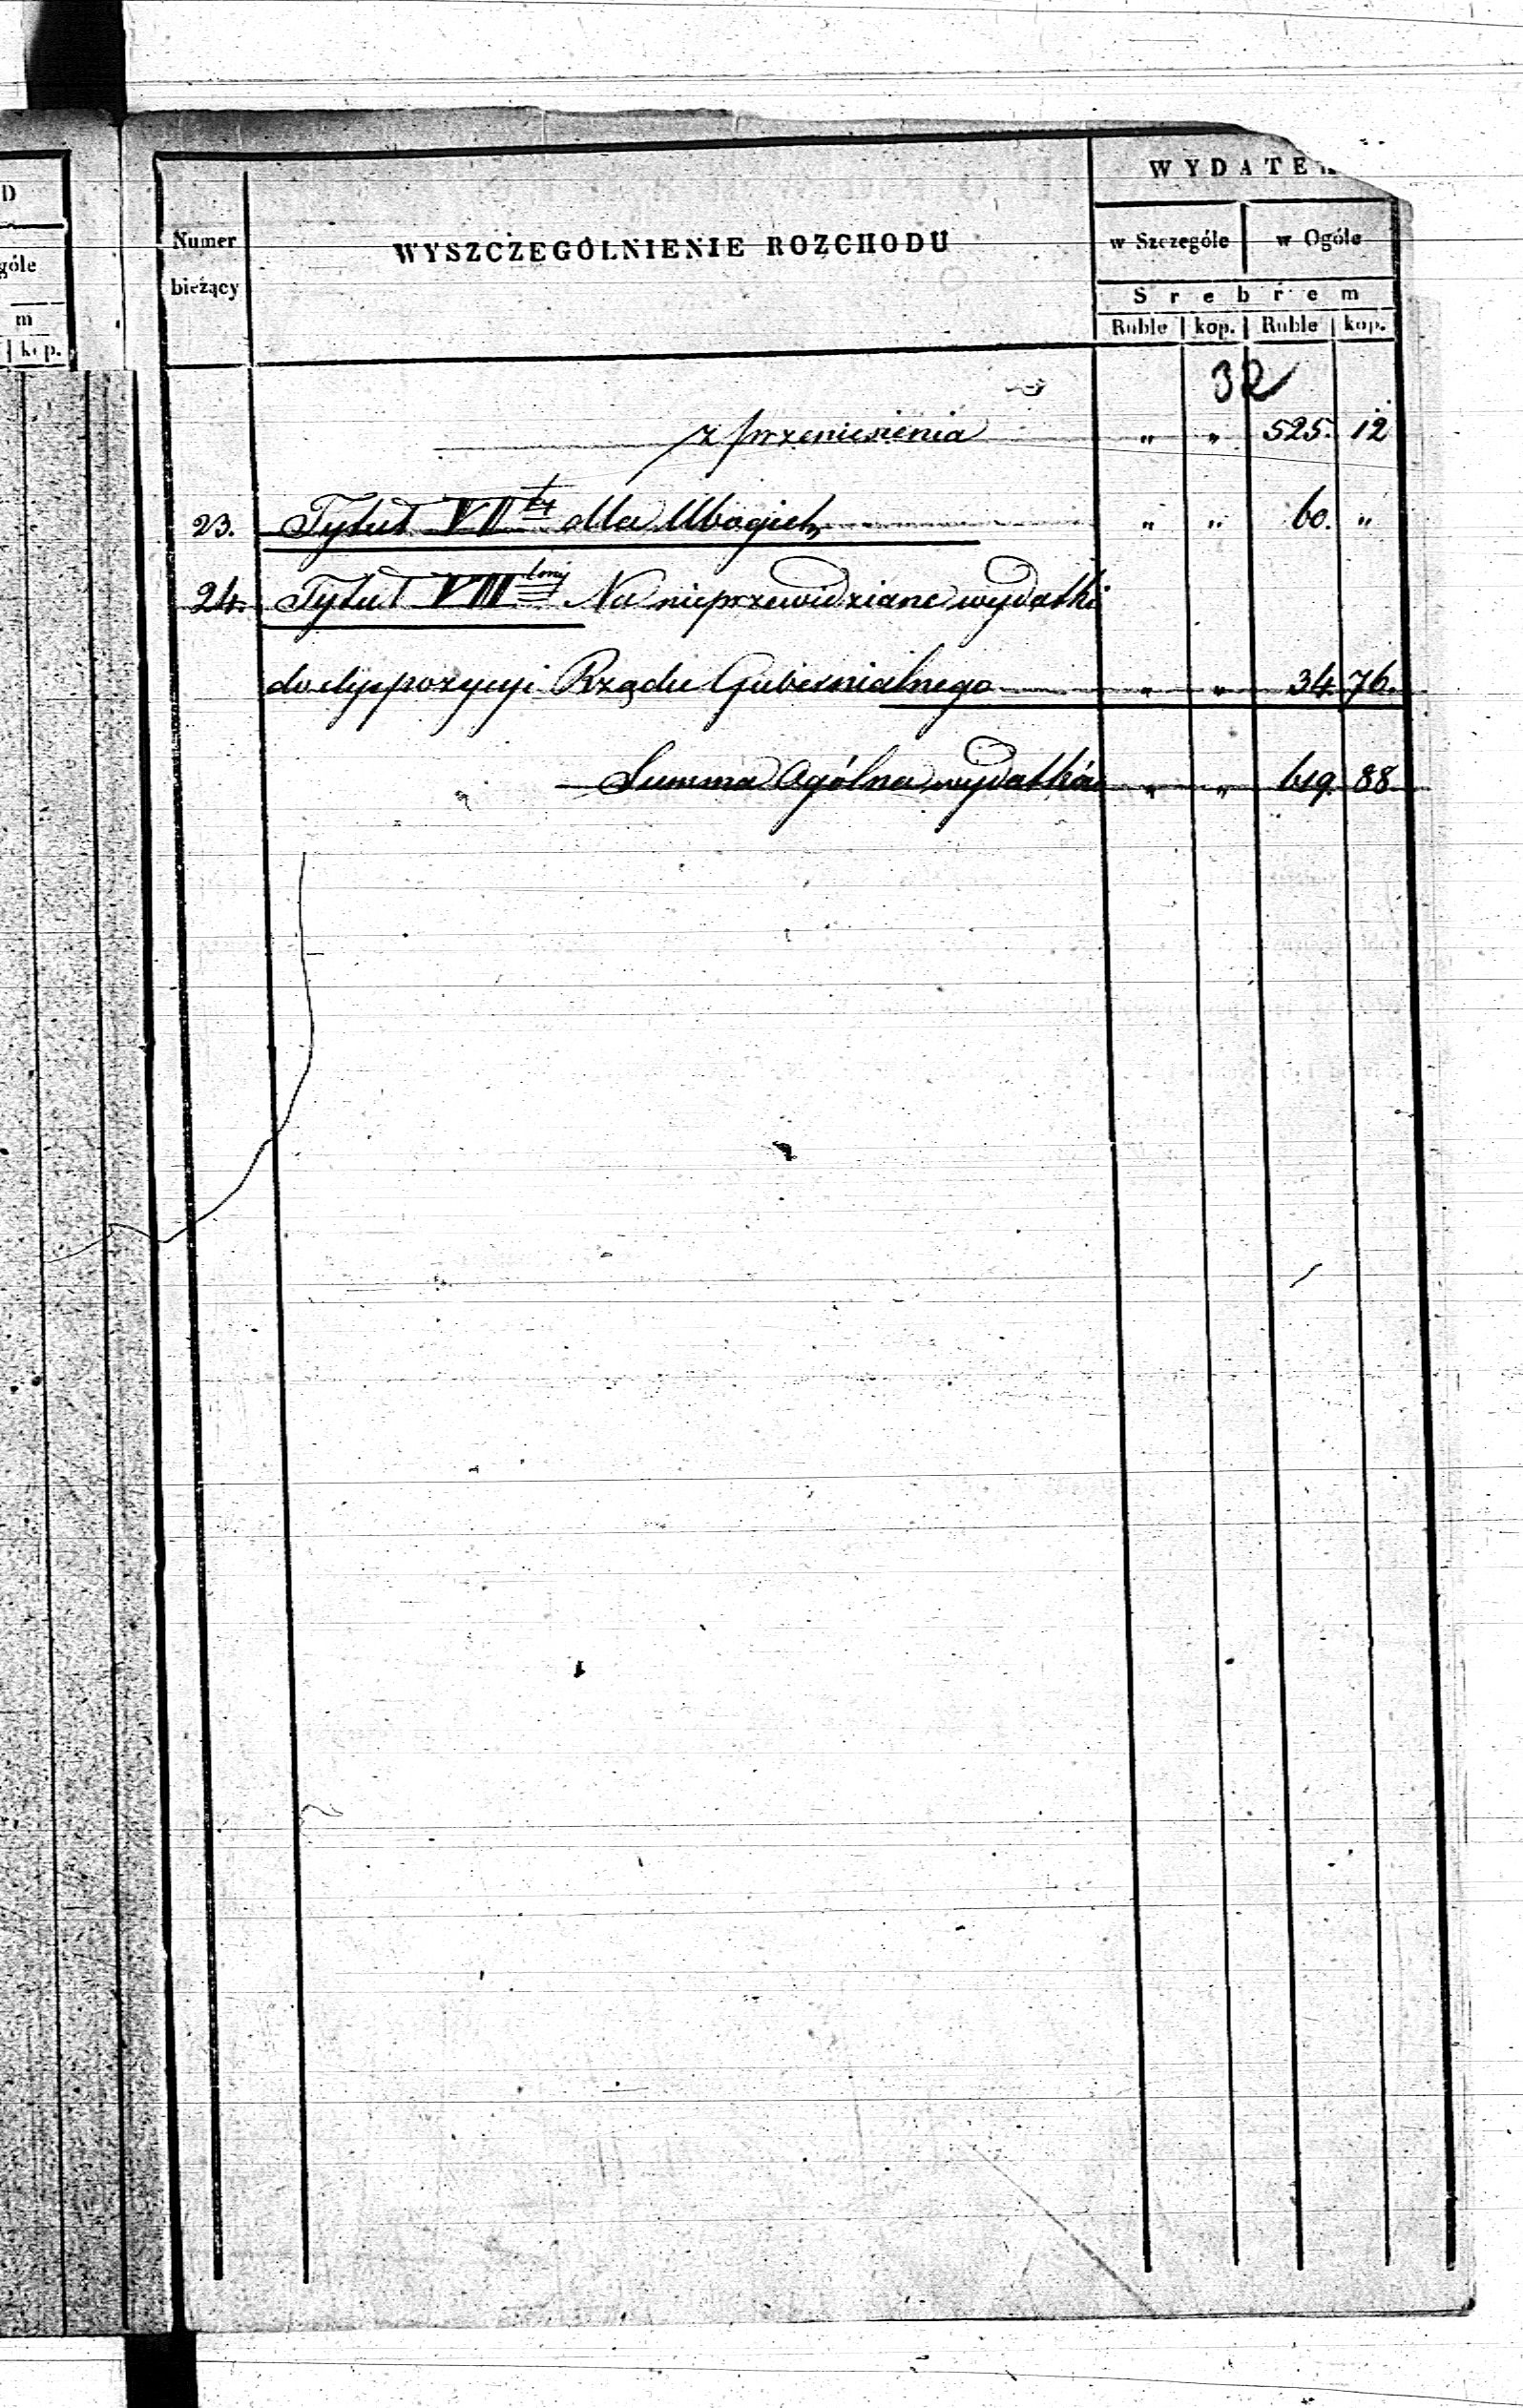 D
góle
m
kop.
WYDATE
Numer
bieżący
WYSZCZEGÓLNIENIE ROZCHODU
w Szczególe w Ogóle
Srebrem
Ruble kop. Ruble kop.
32
z przeniesienia " " 525. 12
23. Tytuł VII dla Ubogich " " 60. "
24. Tytuł VIII Na nieprzewidziane wydatki
do dyspozycyi Rządu Gubernialnego " " 34. 76.
Summa Ogólna wydatków " " 619. 88